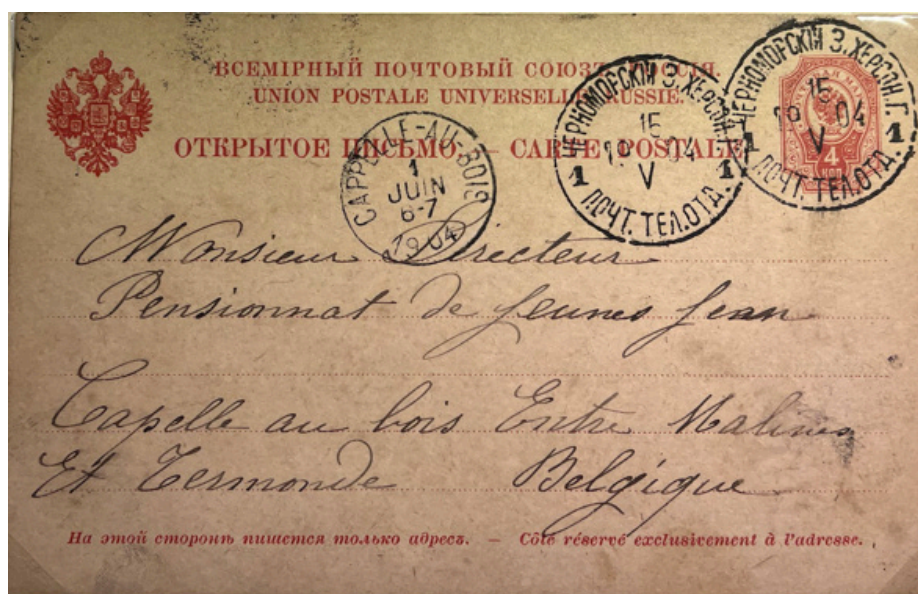 ВСЕМІРНЫЙ ПОЧТОВЫЙ СОЮЗЪ. РОССІЯ.
UNION POSTALE UNIVERSELLE. RUSSIE.
ОТКРЫТОЕ ПИСЬМО. — CARTE POSTALE
CAPPELLE-AU-BOIS
1
JUIN
6-7
1904
ЧЕРНОМОРСКІЙ З. ХЕРСОН. Г.
15
19 04
V
1 1
ПОЧТ. ТЕЛ. ОТД.
ЧЕРНОМОРСКІЙ З. ХЕРСОН. Г.
15
19 04
V
1 1
ПОЧТ. ТЕЛ. ОТД.
4
КОП
Monsieur Directeur
Pensionnat de Jeunes Jean
Capelle au bois Entre Malines
Et Termonde Belgique
На этой сторонѣ пишется только адресъ. — Côté réservé exclusivement à l'adresse.